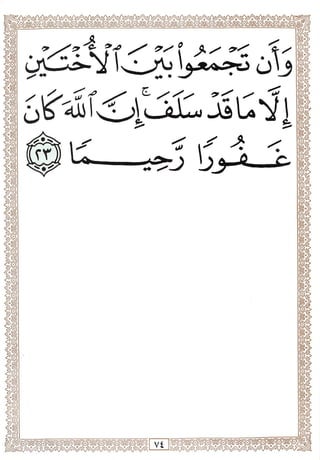 وَأَن تَجْمَعُوا۟ بَيْنَ ٱلْأُخْتَيْنِ
إِلَّا مَا قَدْ سَلَفَ ۚ إِنَّ ٱللَّهَ كَانَ
غَفُورًا رَّحِيمًا ٢٣
٧٤